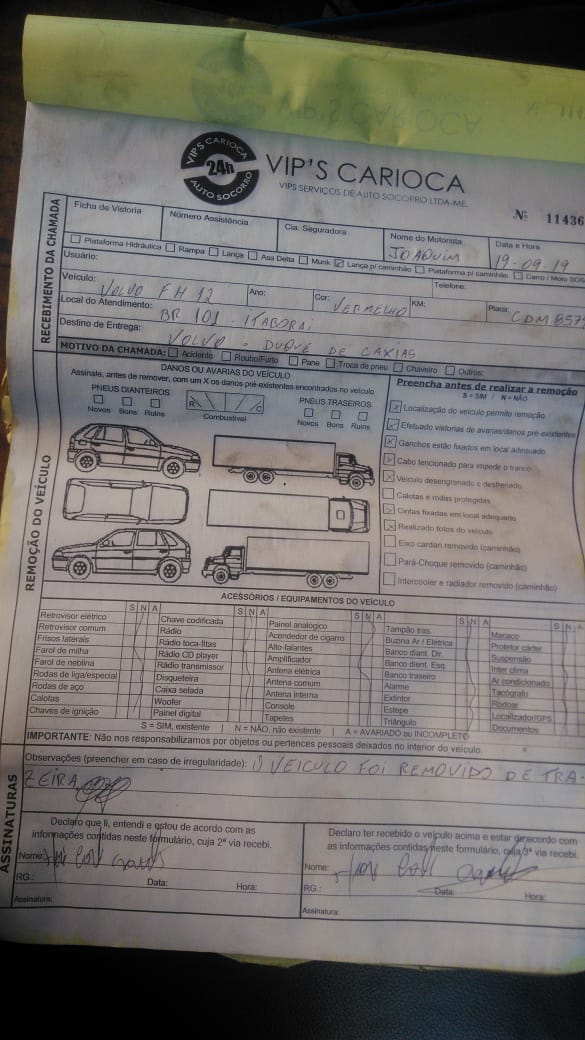 VIP'S CARIOCA
24h
AUTO SOCORRO
VIP'S CARIOCA
VIPS SERVIÇOS DE AUTO SOCORRO LTDA-ME.
Nº 11436
RECEBIMENTO DA CHAMADA
Ficha de Vistoria Número Assistência Cia. Seguradora Nome do Motorista Data e Hora
JOAQUIM 19-09-19
Plataforma Hidráulica Rampa Lança Asa Delta Munk Lança p/ caminhão Plataforma p/ caminhão Carro / Moto SOS
Usuário: Telefone:
Veículo: VOLVO FH 12 Ano: Cor: VERMELHO KM: Placa: CDM 857
Local do Atendimento: BR 101 - ITABORAI
Destino de Entrega: VOLVO - DUQUE DE CAXIAS
MOTIVO DA CHAMADA: Acidente Roubo/Furto Pane Troca de pneu Chaveiro Outros:
REMOÇÃO DO VEÍCULO
DANOS OU AVARIAS DO VEÍCULO
Assinale, antes de remover, com um X os danos pré-existentes encontrados no veículo
PNEUS DIANTEIROS PNEUS TRASEIROS
Novos Bons Ruins R C Combustível Novos Bons Ruins
Preencha antes de realizar a remoção
S = SIM / N = NÃO
Localização do veículo permite remoção
Efetuado vistorias de avarias/danos pré-existentes
Ganchos estão fixados em local adequado
Cabo tencionado para impedir o tranco
Veículo desengrenado e desfreiado
Calotas e rodas protegidas
Cintas fixadas em local adequado
Realizado fotos do veículo
Eixo cardan removido (caminhão)
Pará-Choque removido (caminhão)
Intercooler e radiador removido (caminhão)
ACESSÓRIOS / EQUIPAMENTOS DO VEÍCULO
S N A S N A S N A S N A S N A
Retrovisor elétrico Chave codificada Painel analógico Tampão tras. Macaco
Retrovisor comum Rádio Acendedor de cigarro Buzina Ar / Elétrica Protetor cárter
Frisos laterais Rádio toca-fitas Alto-falantes Banco diant. Dir. Suspensão
Farol de milha Rádio CD player Amplificador Banco dient. Esq. Inter clima
Farol de neblina Rádio transmissor Antena elétrica Banco traseiro Ar condicionado
Rodas de liga/especial Disqueteira Antena comum Alarme Tacógrafo
Rodas de aço Caixa selada Antena interna Extintor Rodoar
Calotas Woofer Console Estepe Localizador/GPS
Chaves de ignição Painel digital Tapetes Triângulo Documentos
S = SIM, existente | N = NÃO, não existente | A = AVARIADO ou INCOMPLETO
IMPORTANTE: Não nos responsabilizamos por objetos ou pertences pessoais deixados no interior do veículo.
Observações (preencher em caso de irregularidade): O VEICULO FOI REMOVIDO DE TRA-
ZEIRA
ASSINATURAS
Declaro que li, entendi e estou de acordo com as
informações contidas neste formulário, cuja 2ª via recebi.
Nome:
RG.: Data: Hora:
Assinatura:
Declaro ter recebido o veículo acima e estar de acordo com
as informações contidas neste formulário, cuja 3ª via recebi.
Nome:
RG.: Data: Hora:
Assinatura: